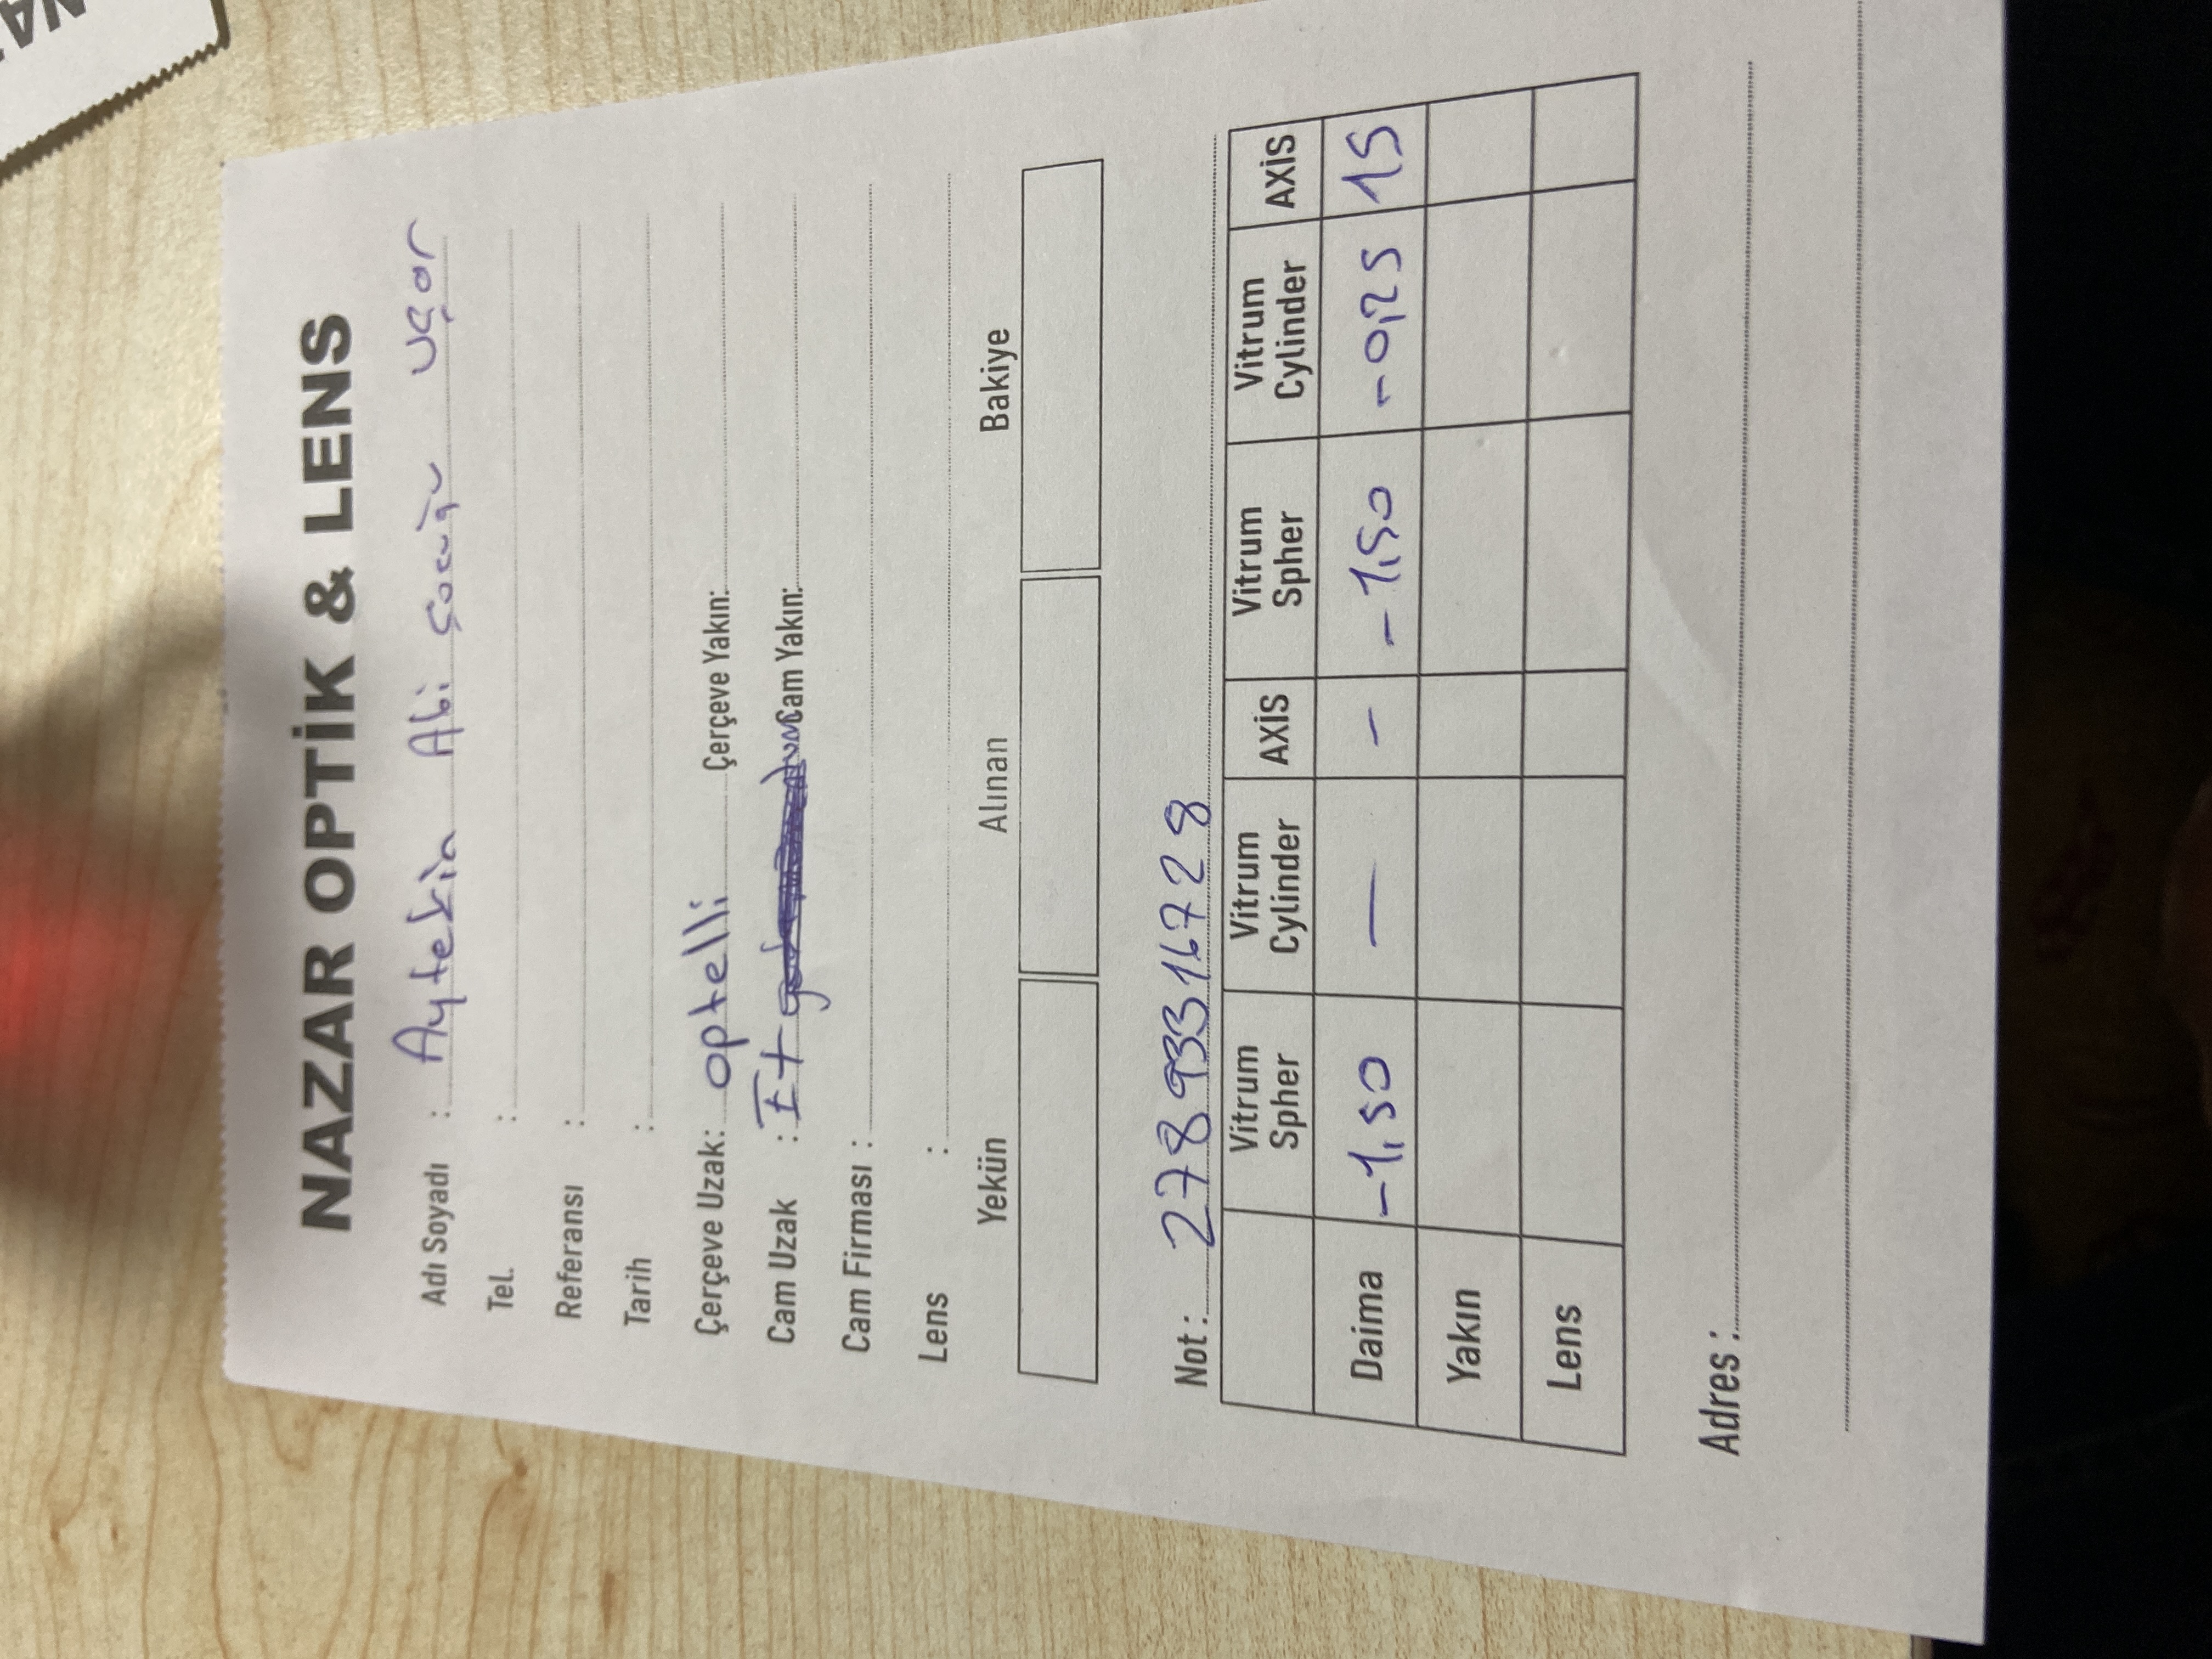 NAZAR OPTİK & LENS
Adı Soyadı : Aytekin Abi çocuğu uçar
Tel. :
Referansı :
Tarih :
Çerçeve Uzak: optelli Çerçeve Yakın:
Cam Uzak : I+ Cam Yakın:
Cam Firması :
Lens :
Yekün Alınan Bakiye
Not: 27893316728
Vitrum Spher Vitrum Cylinder AXİS Vitrum Spher Vitrum Cylinder AXİS
Daima -1,50 — - -1,50 -0,25 15
Yakın
Lens
Adres :